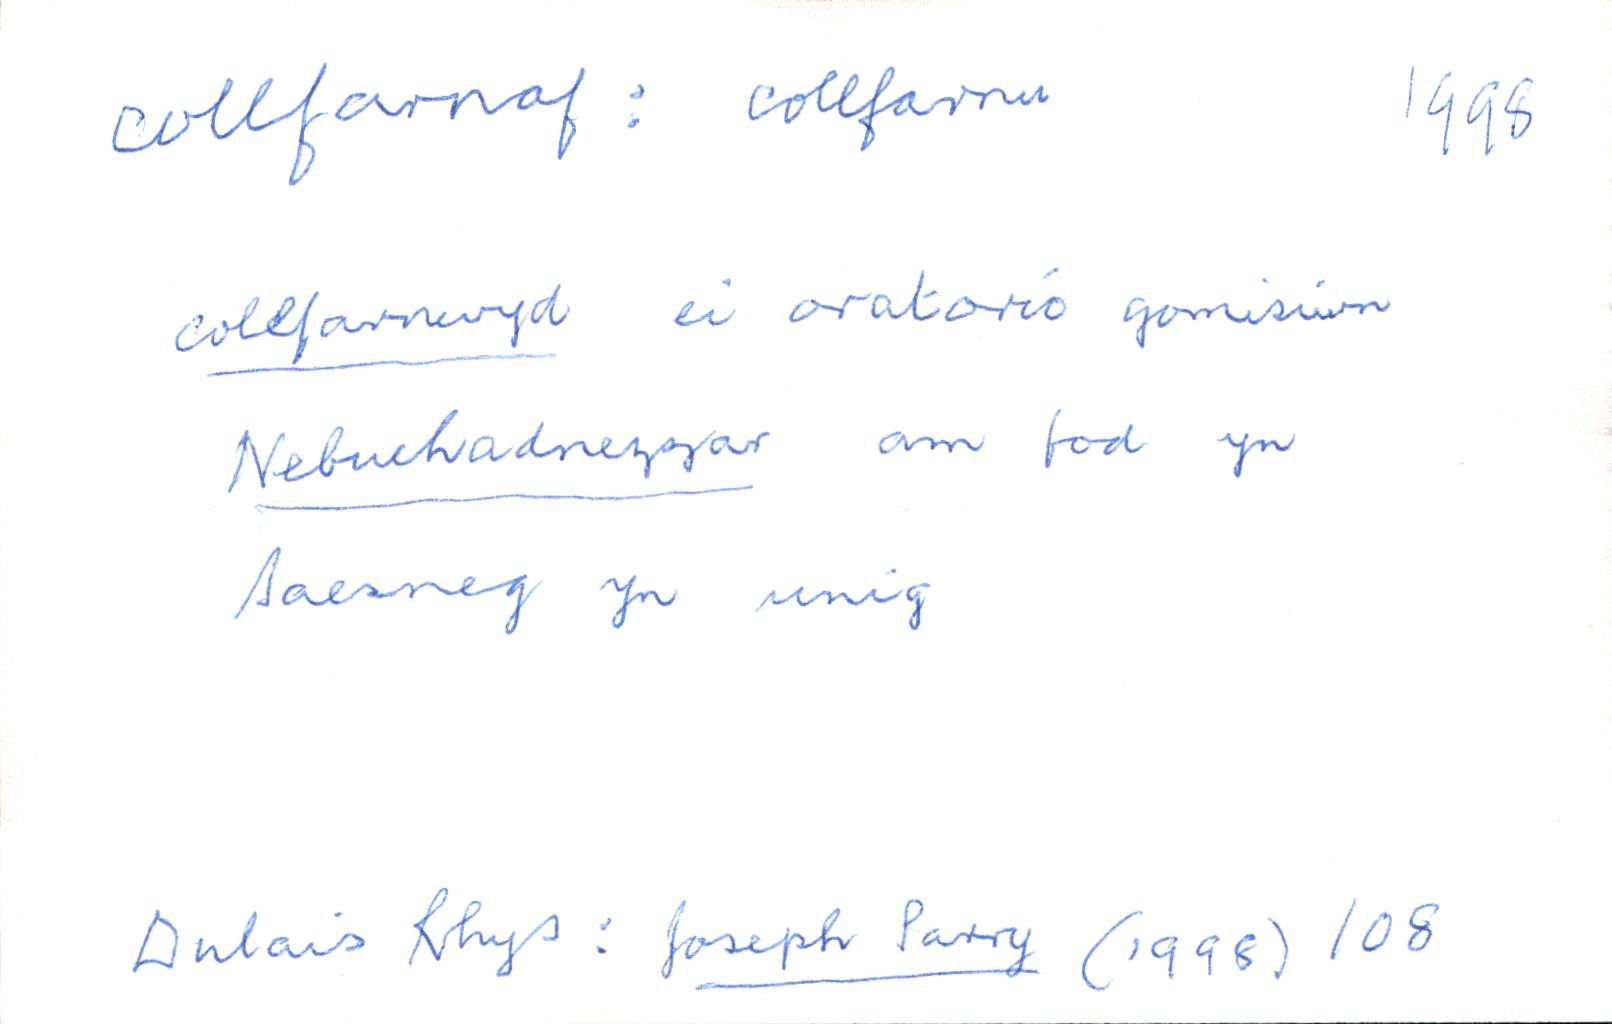 collfarnaf : collfarnu 1998
collfarnwyd ei oratorio gomisiwn
Nebuchadnezzar am fod yn
Saesneg yn unig
Dulais Rhys : Joseph Parry (1998) 108